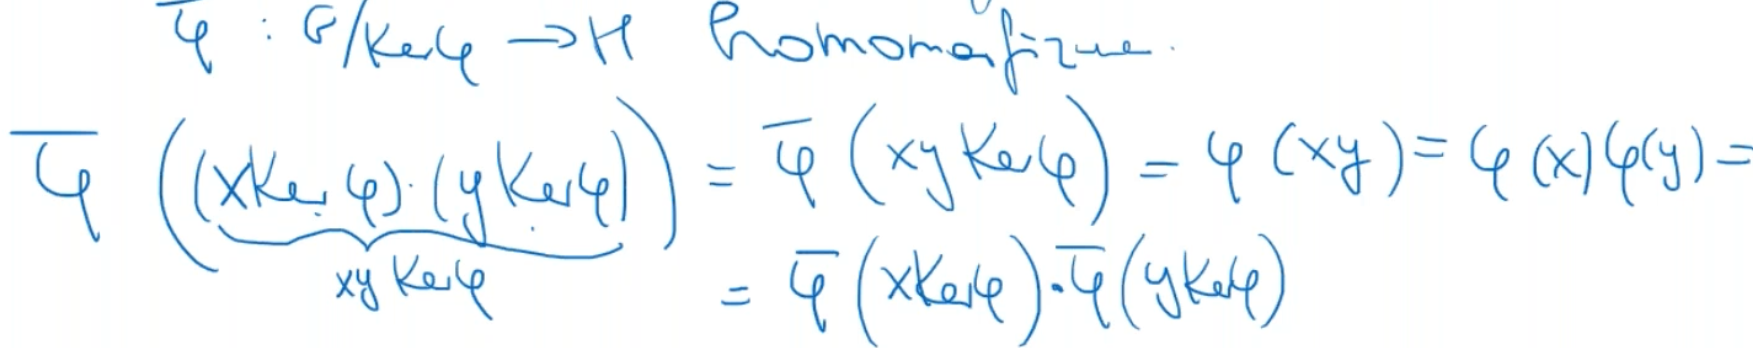 φ̅ : G/Kerφ → H homomorfizmus.
φ̅ ((xKerφ)·(yKerφ)) = φ̅ (xy Kerφ) = φ (xy) = φ(x)φ(y) =
xy Kerφ
= φ̅ (xKerφ)·φ̅(yKerφ)